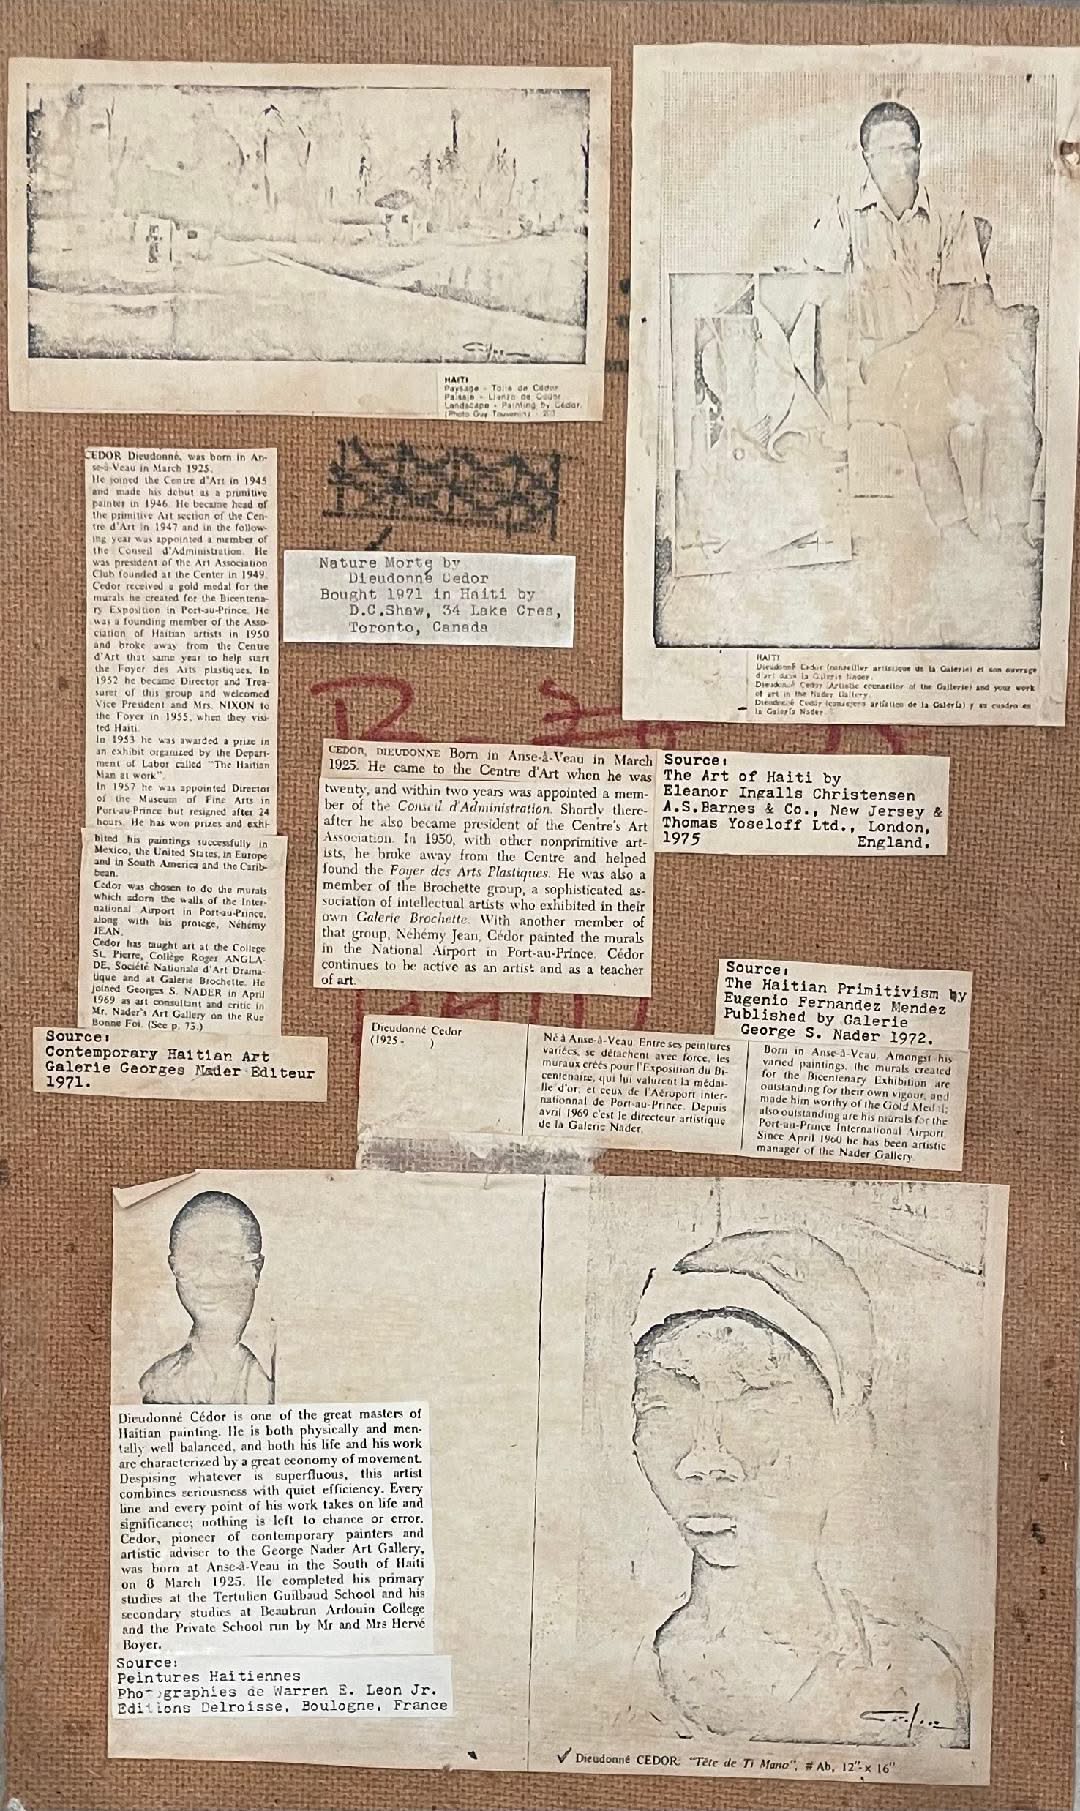 HAITI
Paysage - Toile de Cédor
Paisaje - Lienzo de Cédor
Landscape - Painting by Cédor.
(Photo Guy Touvenin) -
HAITI
Dieudonné Cédor (conseiller artistique de la Galerie) et son ouvrage
d'art dans la Galerie Nader.
Dieudonné Cédor (Artistic counsellor of the Gallerie) and your work
of art in the Nader Gallery.
Dieudonné Cédor (consejero artístico de la Galería) y su cuadro en
la Galería Nader.
CEDOR Dieudonné, was born in An-
se-à-Veau in March 1925.
He joined the Centre d'Art in 1945
and made his debut as a primitive
painter in 1946. He became head of
the primitive Art section of the Cen-
tre d'Art in 1947 and in the follow-
ing year was appointed a member of
the Conseil d'Administration. He
was president of the Art Association
Club founded at the Center in 1949.
Cedor received a gold medal for the
murals he created for the Bicentena-
ry Exposition in Port-au-Prince. He
was a founding member of the Asso-
ciation of Haitian artists in 1950
and broke away from the Centre
d'Art that same year to help start
the Foyer des Arts plastiques. In
1952 he became Director and Trea-
surer of this group and welcomed
Vice President and Mrs. NIXON to
the Foyer in 1955, when they visi-
ted Haiti.
In 1953 he was awarded a prize in
an exhibit organized by the Depart-
ment of Labor called "The Haitian
Man at work".
In 1957 he was appointed Director
of the Museum of Fine Arts in
Port-au-Prince but resigned after 24
hours. He has won prizes and exhi-
bited his paintings successfully in
Mexico, the United States, in Europe
and in South America and the Carib-
bean.
Cedor was chosen to do the murals
which adorn the walls of the Inter-
national Airport in Port-au-Prince,
along with his protege, Néhémy
JEAN.
Cedor has taught art at the College
St. Pierre, Collège Roger ANGLA-
DE, Société Nationale d'Art Drama-
tique and at Galerie Brochette. He
joined Georges S. NADER in April
1969 as art consultant and critic in
Mr. Nader's Art Gallery on the Rue
Bonne Foi. (See p. 73.)
Source:
Contemporary Haitian Art
Galerie Georges Nader Editeur
1971.
Nature Morte by
Dieudonné Cedor
Bought 1971 in Haiti by
D.C.Shaw, 34 Lake Cres,
Toronto, Canada
CEDOR, DIEUDONNE Born in Anse-à-Veau in March
1925. He came to the Centre d'Art when he was
twenty, and within two years was appointed a mem-
ber of the Conseil d'Administration. Shortly there-
after he also became president of the Centre's Art
Association. In 1950, with other nonprimitive art-
ists, he broke away from the Centre and helped
found the Foyer des Arts Plastiques. He was also a
member of the Brochette group, a sophisticated as-
sociation of intellectual artists who exhibited in their
own Galerie Brochette. With another member of
that group, Néhémy Jean, Cédor painted the murals
in the National Airport in Port-au-Prince. Cédor
continues to be active as an artist and as a teacher
of art.
Source:
The Art of Haiti by
Eleanor Ingalls Christensen
A.S.Barnes & Co., New Jersey &
Thomas Yoseloff Ltd., London,
1975 England.
Source:
The Haitian Primitivism by
Eugenio Fernandez Mendez
Published by Galerie
George S. Nader 1972.
Dieudonné Cedor
(1925 - )
Né à Anse-à-Veau. Entre ses peintures
variées, se détachent avec force, les
muraux créés pour l'Exposition du Bi-
centenaire, qui lui valurent la médai-
lle d'or; et ceux de l'Aéroport inter-
nationnal de Port-au-Prince. Depuis
avril 1969 c'est le directeur artistique
de la Galerie Nader.
Born in Anse-à-Veau. Amongst his
varied paintings, the murals created
for the Bicentenary Exhibition are
outstanding for their own vigour, and
made him worthy of the Gold Medal;
also outstanding are his murals for the
Port-au-Prince International Airport.
Since April 1960 he has been artistic
manager of the Nader Gallery.
Dieudonné Cédor is one of the great masters of
Haitian painting. He is both physically and men-
tally well balanced, and both his life and his work
are characterized by a great economy of movement.
Despising whatever is superfluous, this artist
combines seriousness with quiet efficiency. Every
line and every point of his work takes on life and
significance; nothing is left to chance or error.
Cedor, pioneer of contemporary painters and
artistic adviser to the George Nader Art Gallery,
was born at Anse-à-Veau in the South of Haiti
on 8 March 1925. He completed his primary
studies at the Tertulien Guilbaud School and his
secondary studies at Beaubrun Ardouin College
and the Private School run by Mr and Mrs Hervé
Boyer.
Source:
Peintures Haitiennes
Photographies de Warren E. Leon Jr.
Editions Delroisse, Boulogne, France
Dieudonné CEDOR: "Tête de Ti Mano", # Ab, 12"x 16"